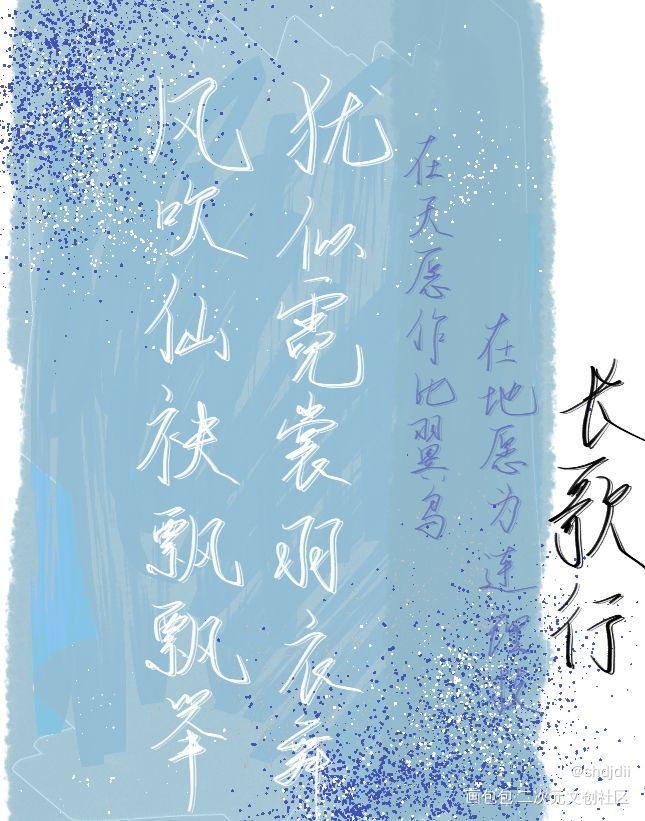 风吹仙袂飘飘举
犹似霓裳羽衣舞
在天愿作比翼鸟
在地愿为连理枝
长歌行
@shdjdii
画包包·二次元文创社区